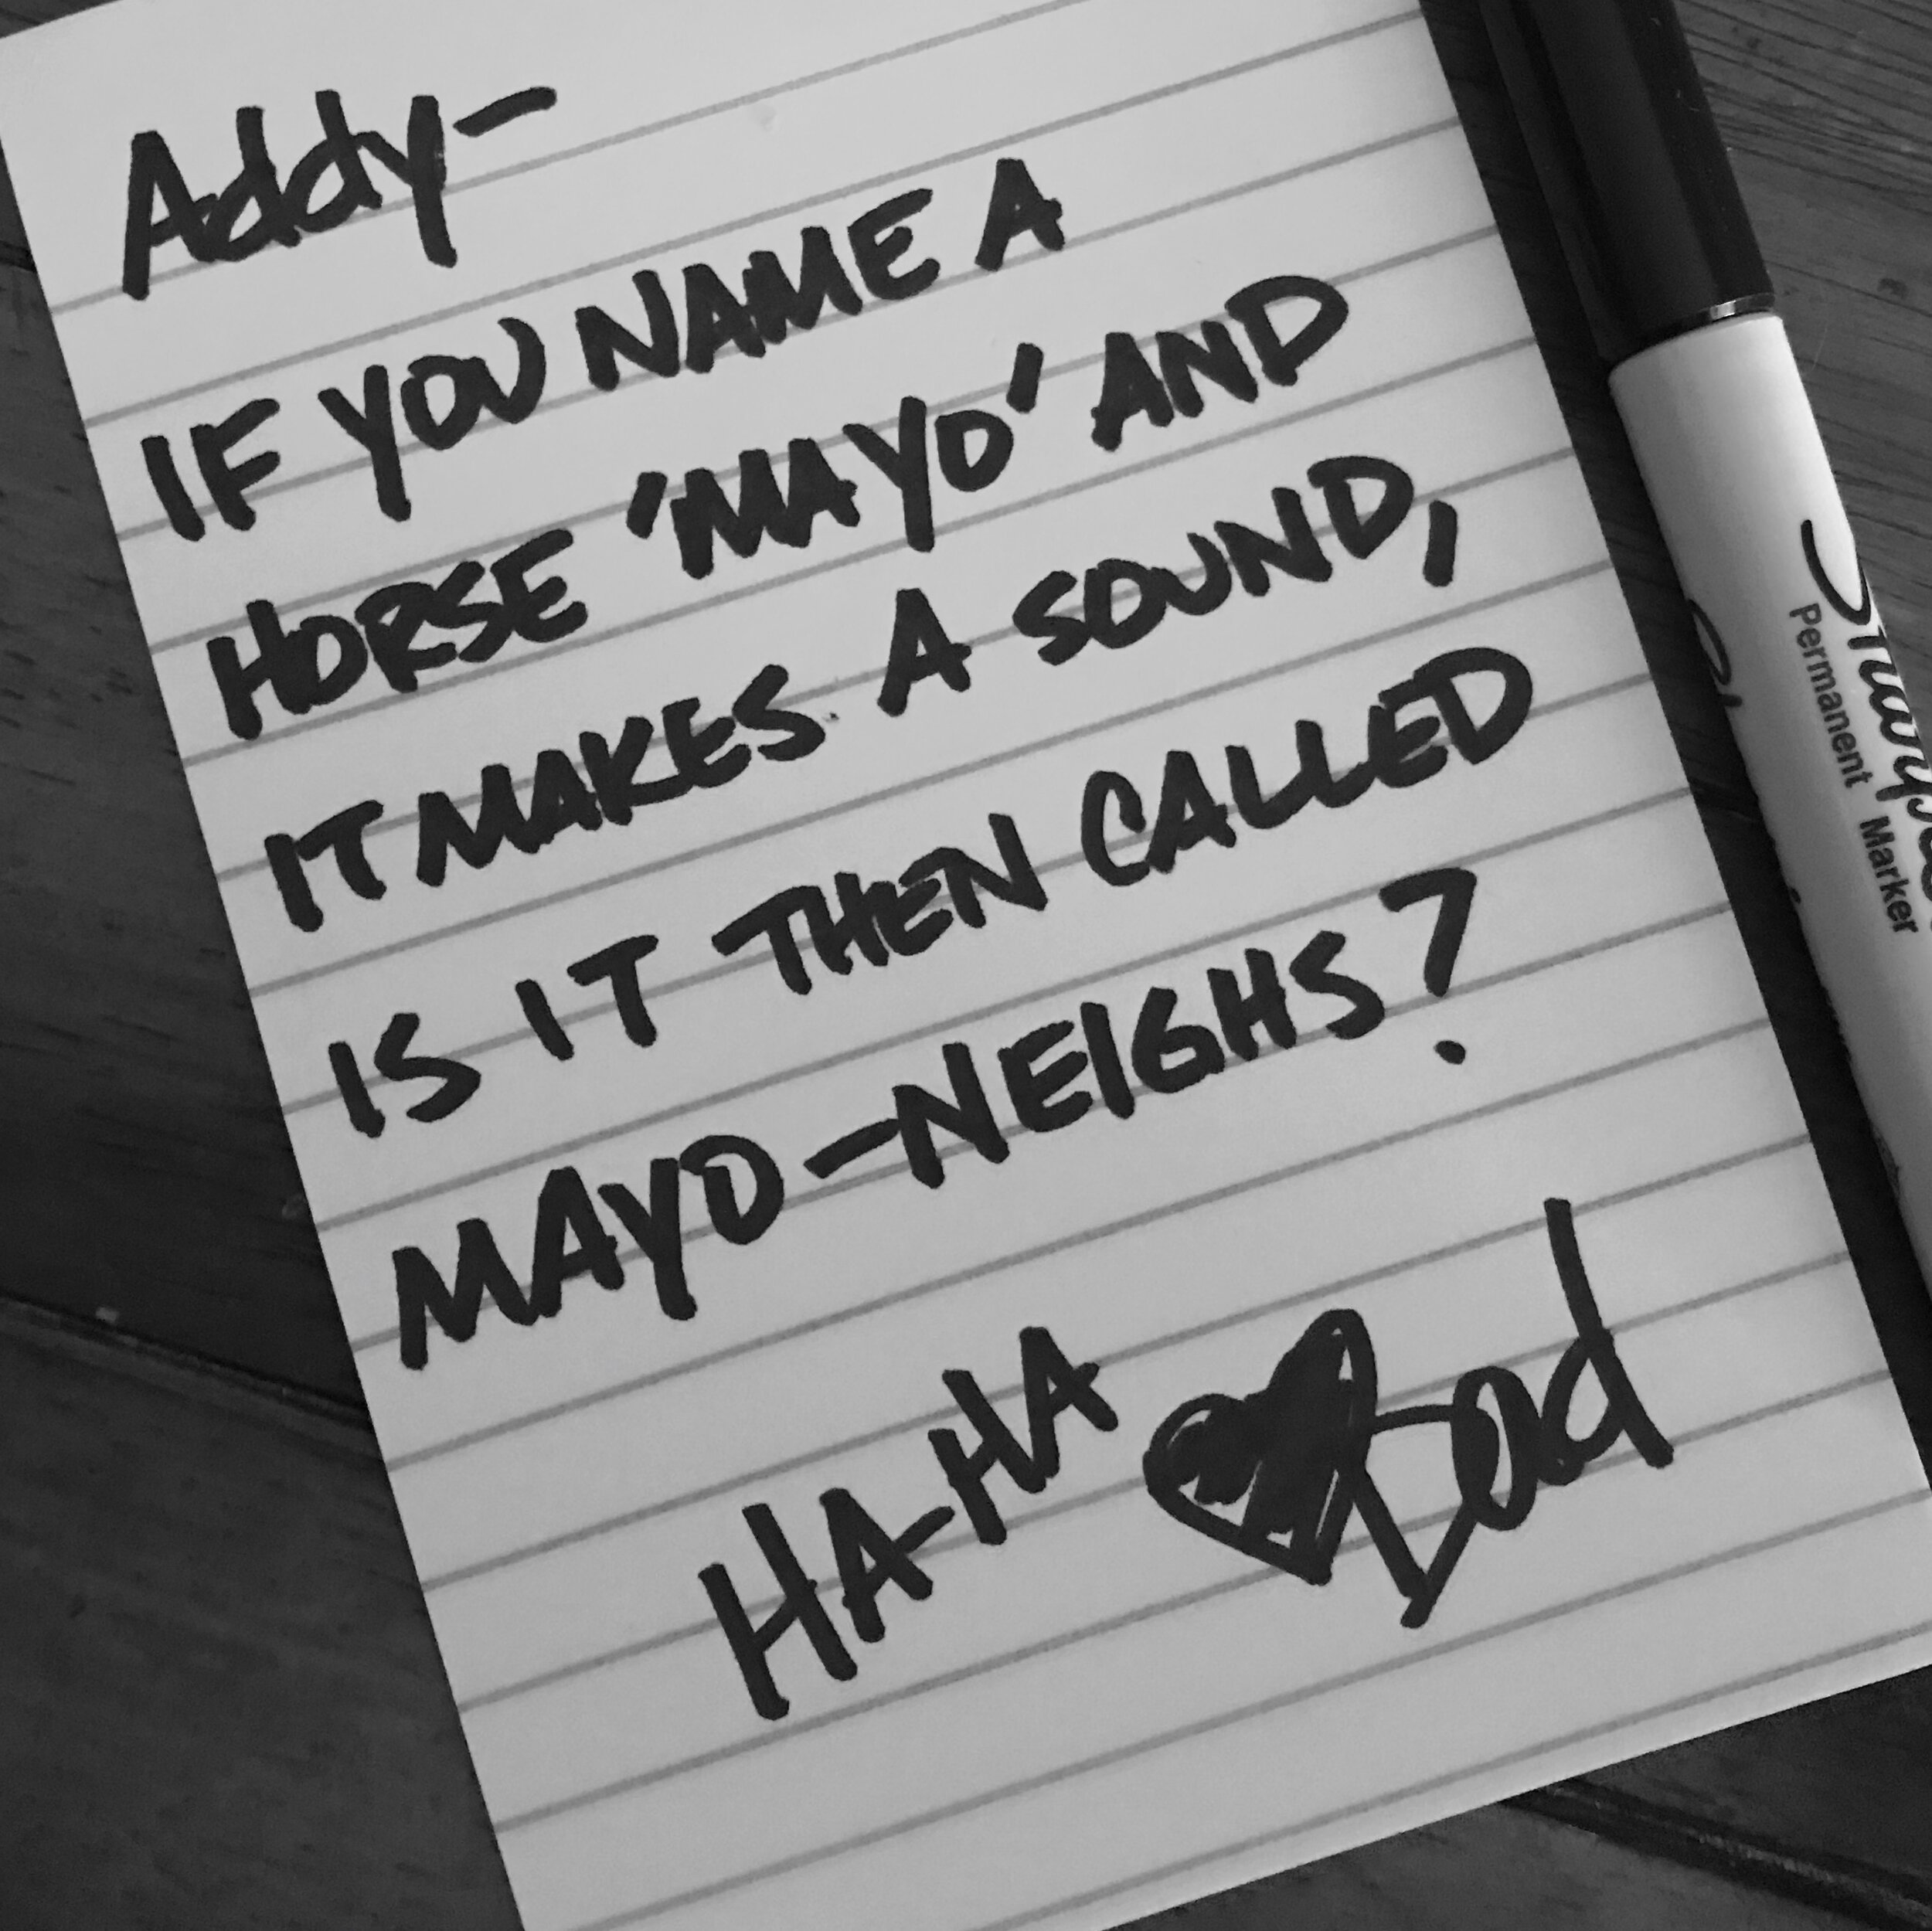 Addy-
IF YOU NAME A
HORSE 'MAYO' AND
IT MAKES A SOUND,
IS IT THEN CALLED
MAYO-NEIGHS?
HA-HA
Dad
Sharpie
Permanent Marker